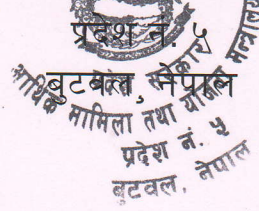 प्रदेश नं. ५
बुटवल, नेपाल
आर्थिक मामिला तथा योजना मन्त्रालय
प्रदेश नं. ५
बुटवल, नेपाल